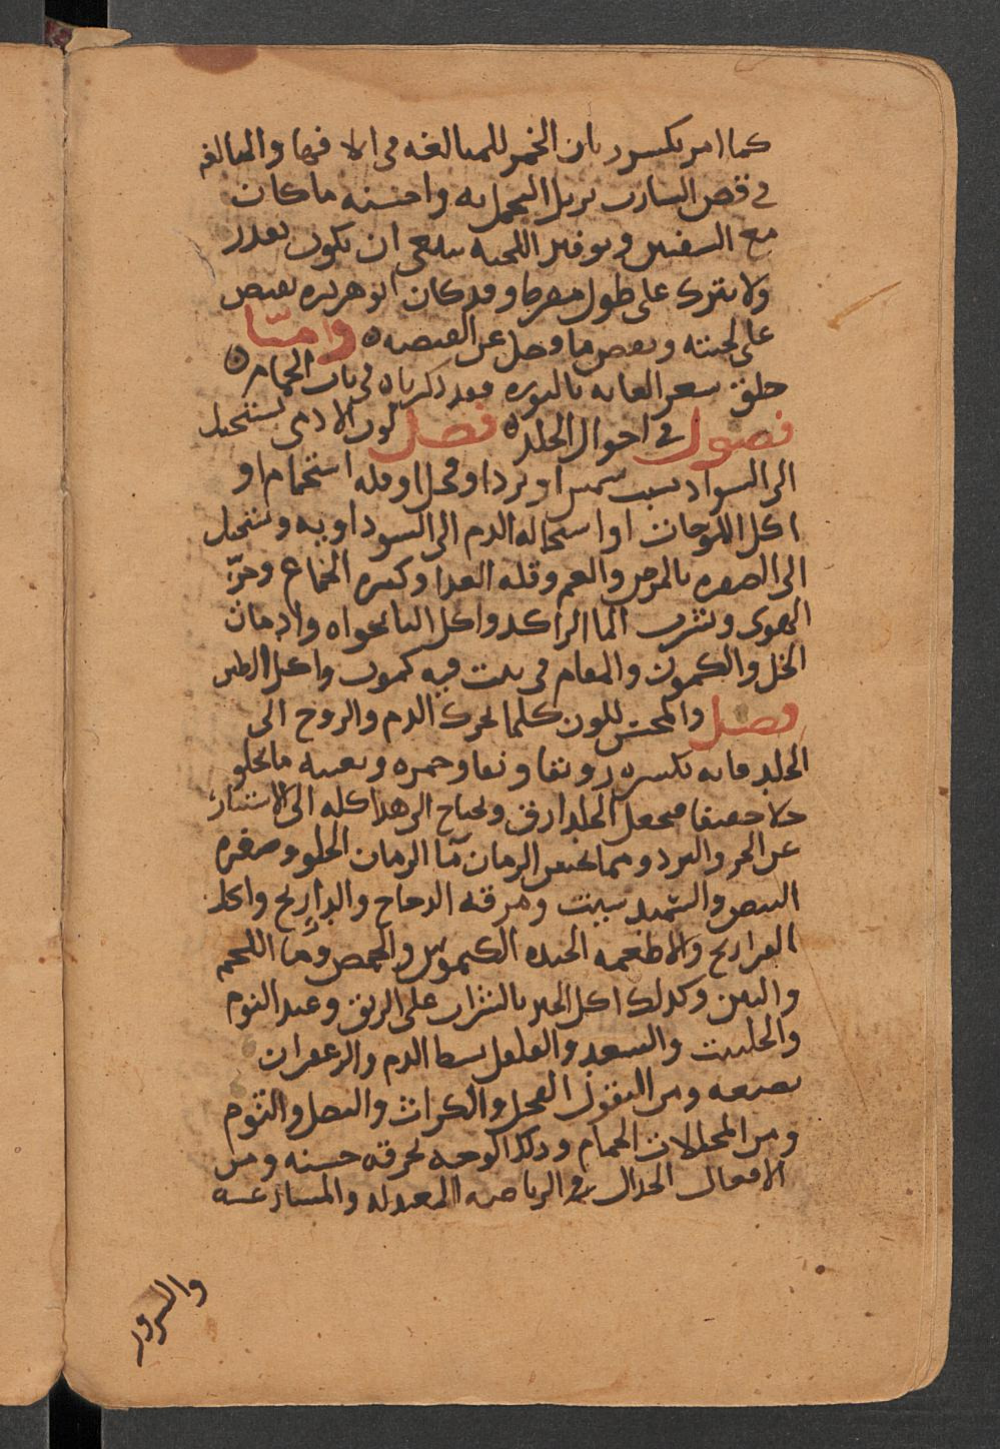 كما امر بكسر دنان الخمر للمبالغه في الاراقها والمبالغه
في قص الشارب يزيل التجمل به واحسنه ما كان
مع الشفتين وتوفير اللحيه ينبغي ان يكون بقدر
ولا يترك على طول مفرط وقد كان ابو هريره يقبض
على لحيته ويقص ما فضل عن القبضه واما
حلق شعر العانه بالنوره فقد ذكرناه في باب الحمام
فصول في احوال الجلد فصل لون الادمي يستحيل
الى السواد بسبب شمس او برد او قحل او قله استحمام او
اكل الملوحات او استحاله الدم الى السوداويه ويستحيل
الى الصفره بالمرض والغم وقله الغذا وكثره الجماع وحرّ
الهوى وشرب الما الراكد واكل النانخواه وادمان
الخل والكمون والمقام في بيت فيه كمون واكل الطين
فصل والمحسن للون كلما يحرك الدم والروح الى
الجلد فانه يكسبه رونقا ونقا وحمره ويعينه ما يجلو
جلا خفيفا فيجعل الجلد ارق ويحتاج الى هذا كله الى الاستتار
عن الحر والبرد ومما يحسن الرمان ما الرمان الحلو وصفره
البيض والشميد سبت ومرقه الدجاج والدراريج واكل
الفراريج والاطعمه الجيده الكيموس والحمص وما اللحم
والتين وكذلك اكل الخبز بالشراب على الريق وعند النوم
والحلتيت والسعد والفلفل يبسط الدم والزعفران
يصبغه ومن البقول الفجل والكراث والبصل والثوم
ومن المحللات الحمام ودلك الوجه بخرقه خشنه ومن
الافعال الجدال والرياضه المعتدله والمنازعه
والسرور